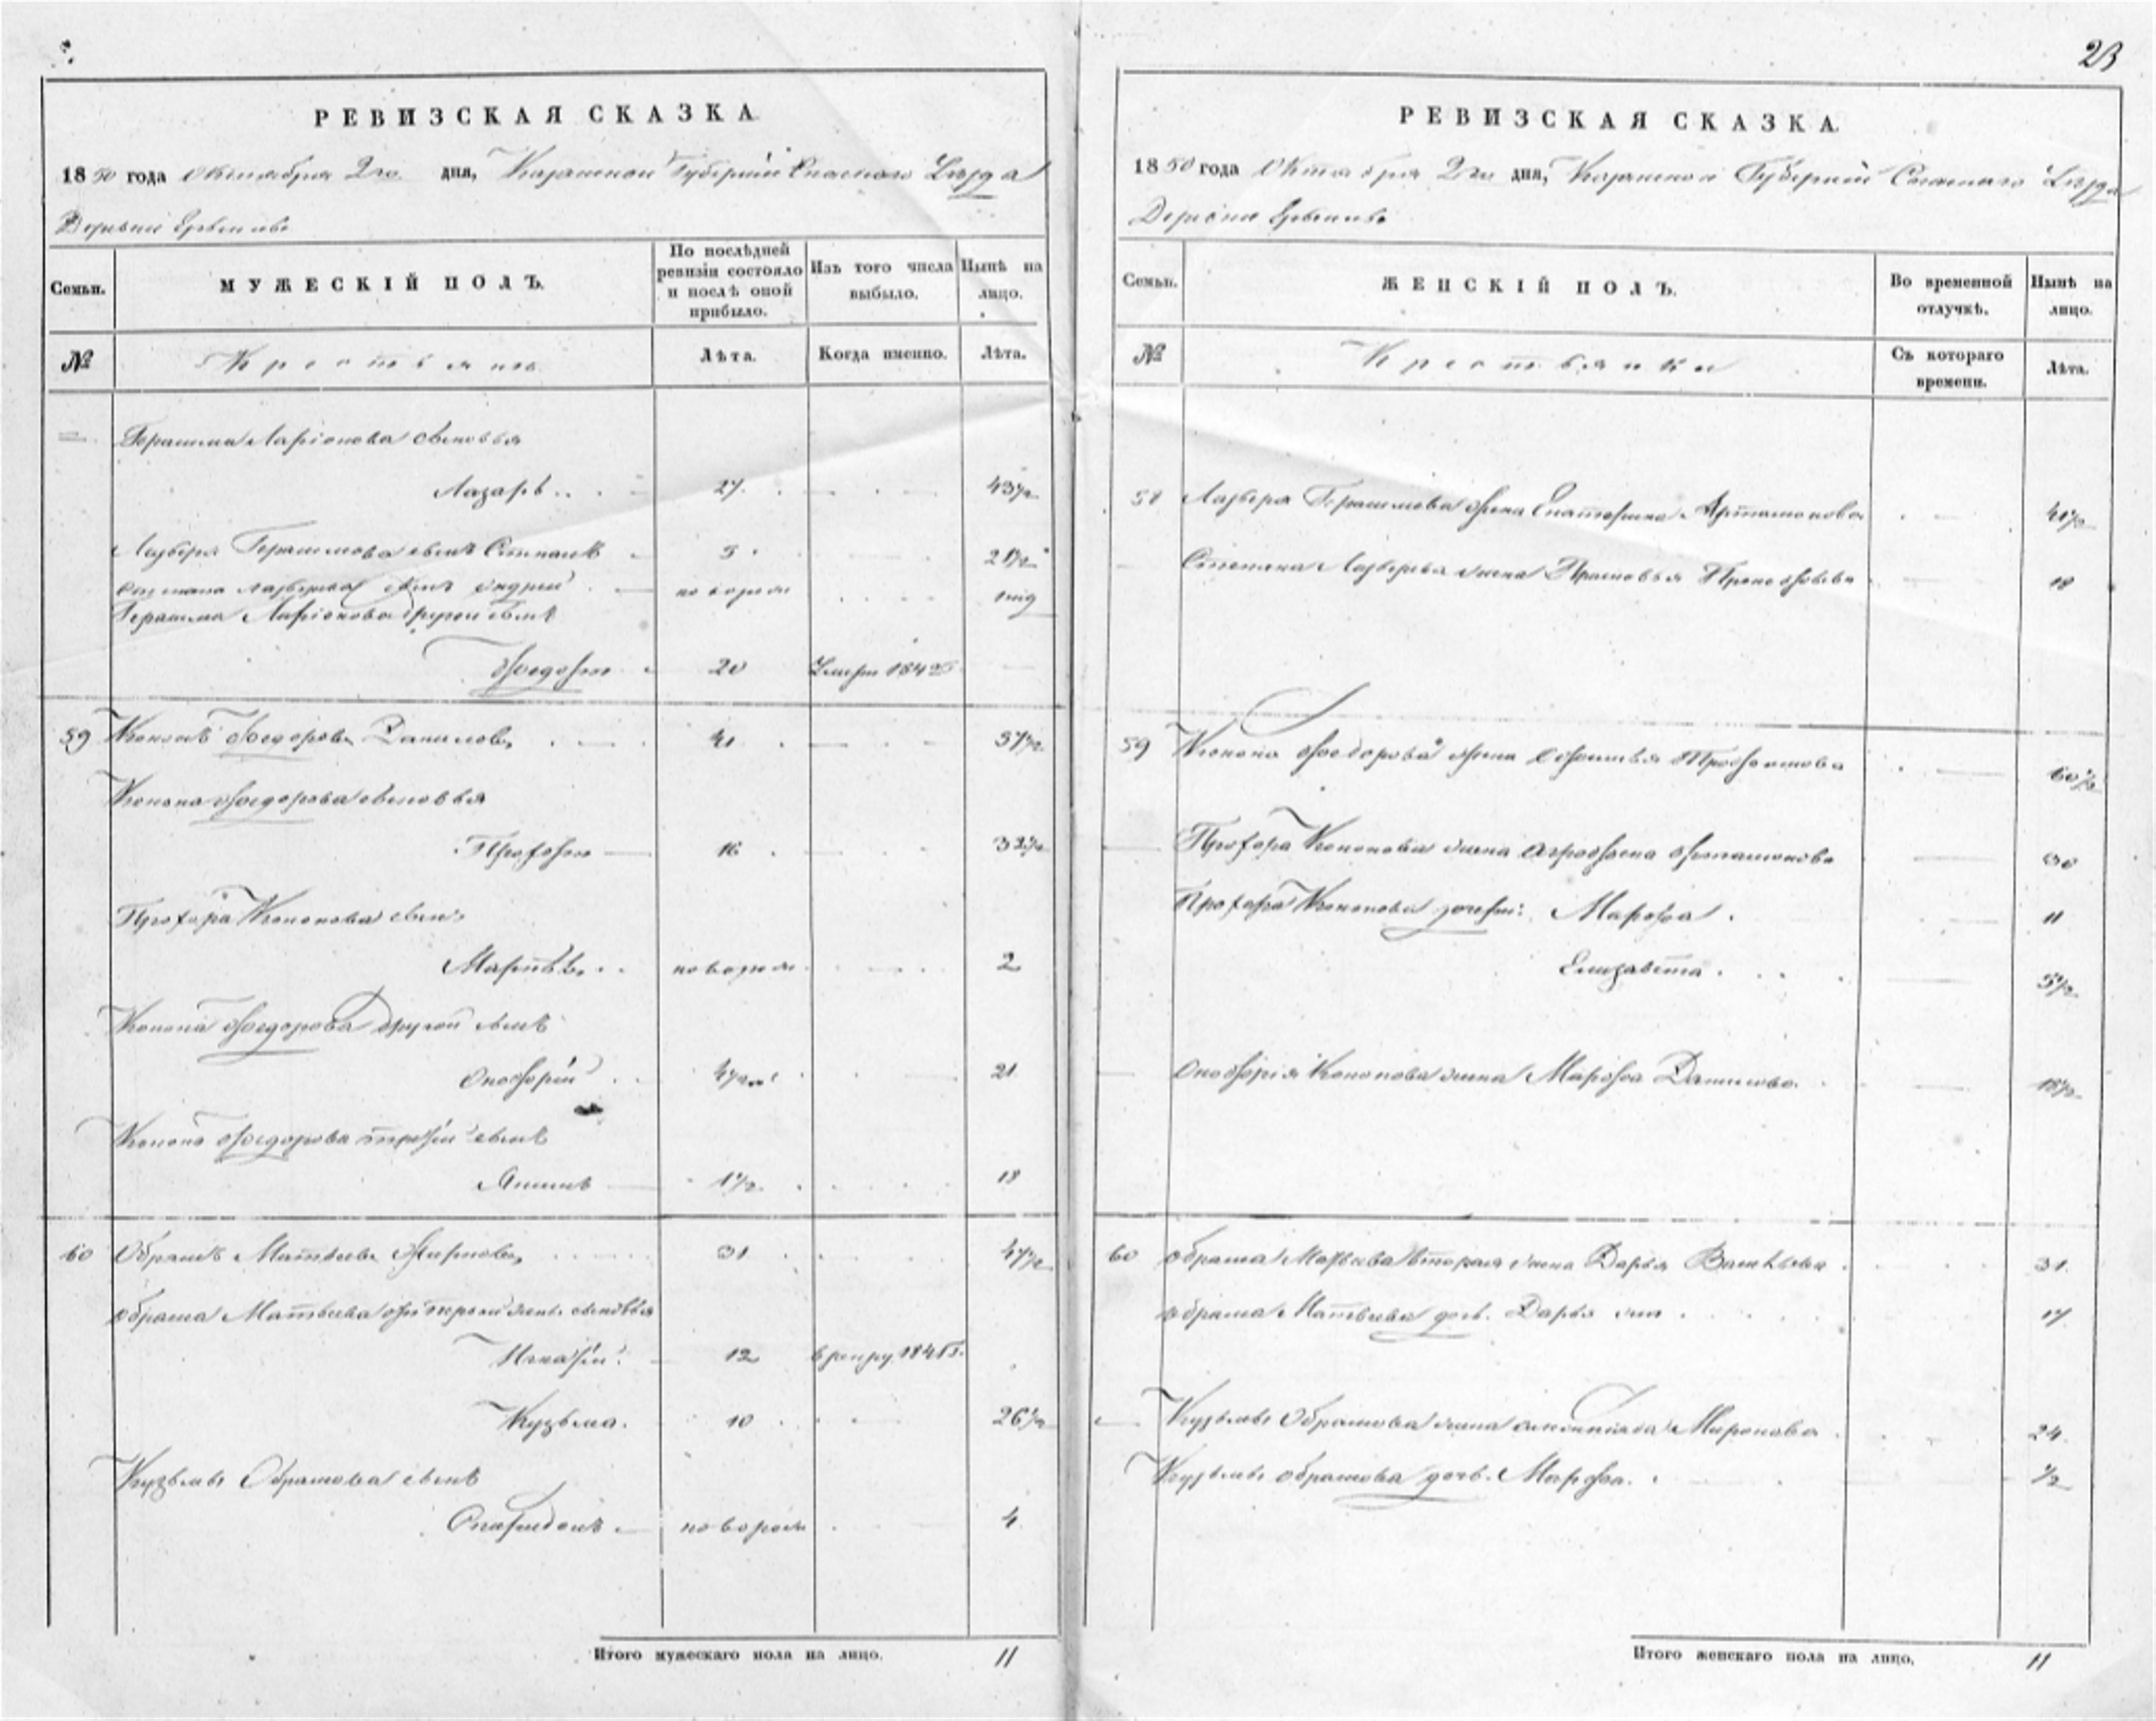 23
РЕВИЗСКАЯ СКАЗКА
1850 года Октября 2го дня, Казанской Губернии Спаскаго Уѣзда
Деревни
Семьи.
МУЖЕСКІЙ ПОЛЪ.
По послѣдней ревизіи состояло и послѣ оной прибыло.
Изъ того числа выбыло.
Нынѣ на лицо.
№
Крестьянъ
Лѣта.
Когда именно.
Лѣта.
Герасима Ларіонова сыновья
Лазарь 27 43½
Лазаря Герасимова сынъ Степанъ 5 21½
Степана Лазарева сынъ Андрей новорож
Герасима Ларіонова другой сынъ
Федотъ 20 Умеръ 1842
59 Кононъ Федоровъ Даниловъ 41 57½
Конона Федорова сыновья
Профоръ 16 32½
Профора Кононова сынъ
новорож 2
Конона Федорова другой сынъ
Онофрій 21
Конона Федорова третій сынъ
1½ 18
60 Обрамъ Матвѣевъ 31 47½
Обрама Матвѣева отъ первой жены сыновья
Игнатій 12 в рекру 184
Кузьма 10 26½
Кузьмы Обрамова сынъ
Спиридонъ новорож 4
Итого мужескаго пола на лицо. 11
РЕВИЗСКАЯ СКАЗКА
1850 года Октября 2го дня, Казанской Губерніи Спаскаго Уѣзда
Деревни
Семьи.
ЖЕНСКІЙ ПОЛЪ.
Во временной отлучкѣ.
Нынѣ на лицо.
№
Крестьянки
Съ котораго времени.
Лѣта.
58 Лазаря Герасимова жена Артамонова
Степана Лазарева жена Прасковья 18
59 Конона Федорова жена 60½
Профора Кононова жена 30
Профора Кононова дочери: Марфа 11
Елизавета 5½
Онофрія Кононова жена Марфа Данилова 18½
60 Обрама Матвѣева вторая жена Дарья Васильева 31
Обрама Матвѣева дочь Дарья 17
Кузьмы Обрамова жена Миронова 24
Кузьмы Обрамова дочь Марфа ½
Итого женскаго пола на лицо. 11